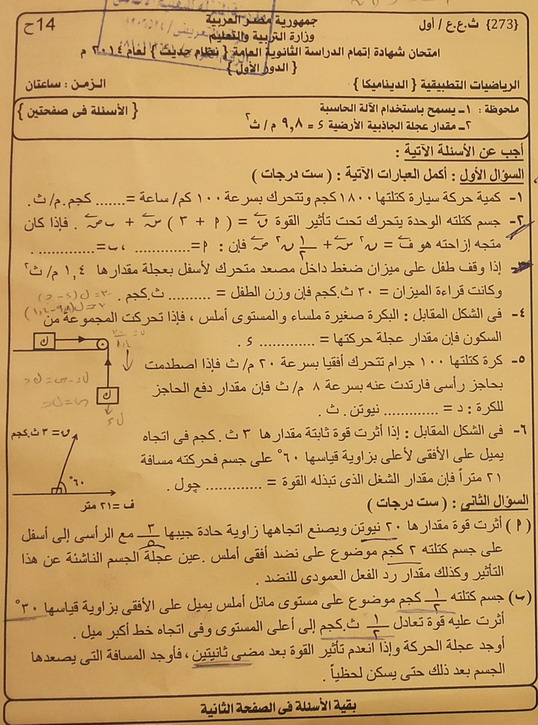 {273} ث.ع.ع / أول
جمهورية مصر العربية
14ح
وزارة التربية والتعليم
امتحان شهادة إتمام الدراسة الثانوية العامة { نظام حديث } لعام ٢٠١٤ م
{ الدور الأول }
الرياضيات التطبيقية { الديناميكا }
الزمن : ساعتان
ملحوظة : ١ـ يسمح باستخدام الآلة الحاسبة
{ الأسئلة فى صفحتين }
٢ـ مقدار عجلة الجاذبية الأرضية ء = ٩,٨ م / ث٢
أجب عن الأسئلة الآتية :
السؤال الأول : أكمل العبارات الآتية : ( ست درجات )
١- كمية حركة سيارة كتلتها ١٨٠٠ كجم وتتحرك بسرعة ١٠٠ كم / ساعة = ....... كجم . م / ث .
٢- جسم كتلته الوحدة يتحرك تحت تأثير القوة ق = ( ٩ + ٣ ) س + ب ص . فإذا كان
متجه إزاحته هو ف = ن٢ س + ١/٢ ن٢ ص فإن : ٩ = ............ ، ب = ............ .
إذا وقف طفل على ميزان ضغط داخل مصعد متحرك لأسفل بعجلة مقدارها ١,٤ م / ث٢
وكانت قراءة الميزان = ٣٠ ث.كجم فإن وزن الطفل = .......... ث.كجم .
٤- فى الشكل المقابل : البكرة صغيرة ملساء والمستوى أملس ، فإذا تحركت المجموعة من
السكون فإن مقدار عجلة حركتها = ............ ء .
ك
ك
٥- كرة كتلتها ١٠٠ جرام تتحرك أفقيا بسرعة ٢٠ م / ث فإذا اصطدمت
بحاجز رأسى فارتدت عنه بسرعة ٨ م / ث فإن مقدار دفع الحاجز
للكرة : د = ............ نيوتن . ث .
٦- فى الشكل المقابل : إذا أثرت قوة ثابتة مقدارها ٣ ث . كجم فى اتجاه
يميل على الأفقى لأعلى بزاوية قياسها ٦٠° على جسم فحركته مسافة
٢١ متراً فإن مقدار الشغل الذى تبذله القوة = ............ جول .
ق = ٣ ث.كجم
٦٠°
ف = ٢١ متر
السؤال الثانى : ( ست درجات )
( ٩ ) أثرت قوة مقدارها ٢٠ نيوتن ويصنع اتجاهها زاوية حادة جيبها ٣/٥ مع الرأسى إلى أسفل
على جسم كتلته ٢ كجم موضوع على نضد أفقى أملس . عين عجلة الجسم الناشئة عن هذا
التأثير وكذلك مقدار رد الفعل العمودى للنضد .
(ب) جسم كتلته ١/٢ كجم موضوع على مستوى مائل أملس يميل على الأفقى بزاوية قياسها ٣٠°
أثرت عليه قوة تعادل ١/٢ ث.كجم إلى أعلى المستوى وفى اتجاه خط أكبر ميل .
أوجد عجلة الحركة وإذا انعدم تأثير القوة بعد مضى ثانيتين ، فأوجد المسافة التى يصعدها
الجسم بعد ذلك حتى يسكن لحظياً .
بقية الأسئلة فى الصفحة الثانية